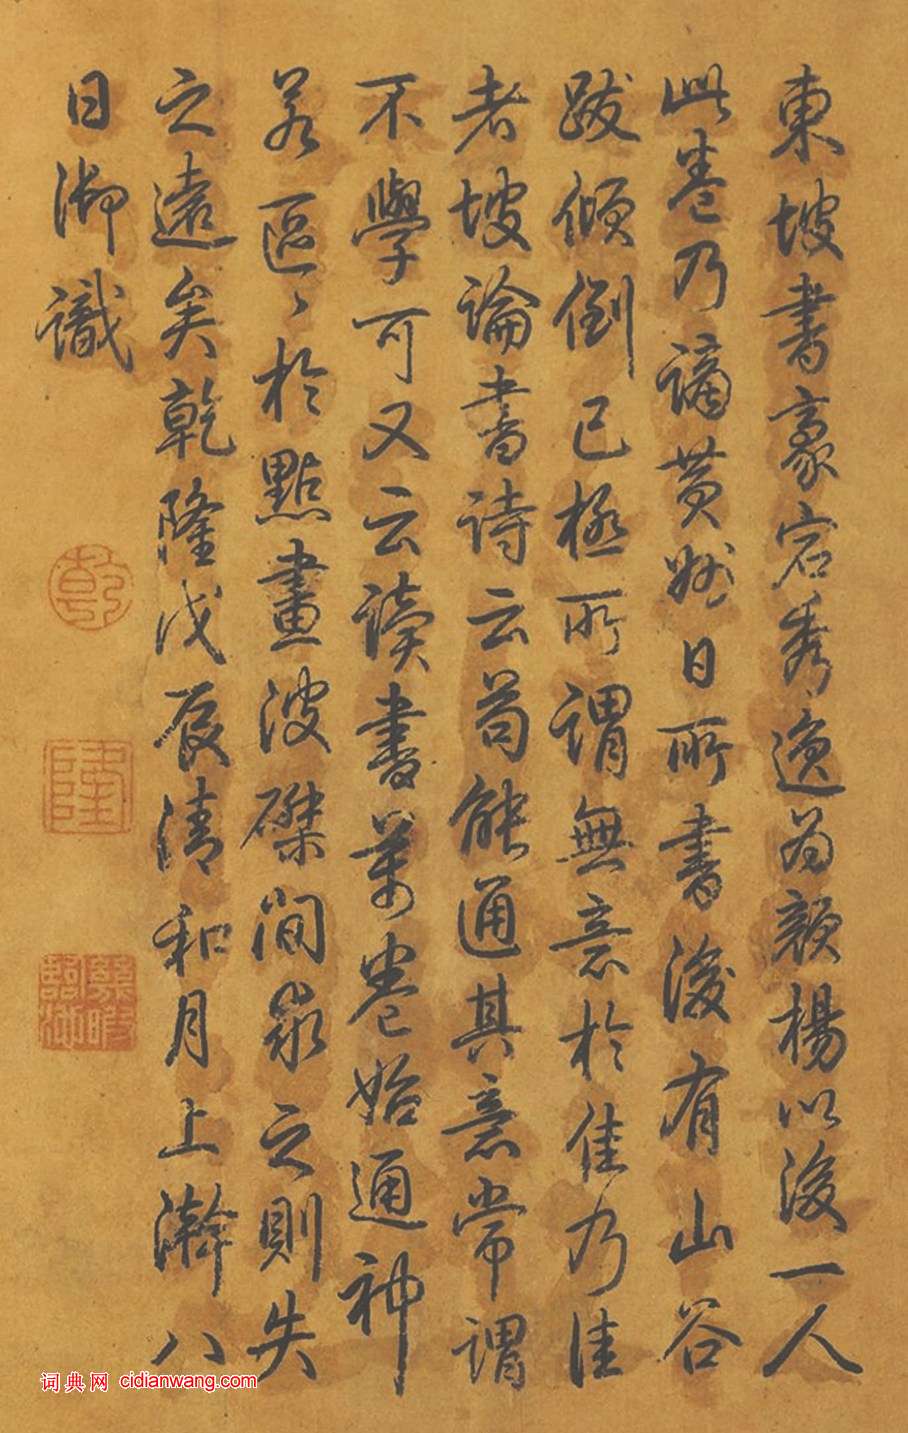 東坡書豪宕秀逸為顏楊以後一人
此卷乃謫黃州日所書後有山谷
跋傾倒已極所謂無意於佳乃佳
者坡論書詩云苟能通其意常謂
不學可又云讀書萬卷始通神
若區〻於點畫波磔間求之則失
之遠矣乾隆戊辰清和月上澣八
日御識
乾
隆
詞典网 cidianwang.com